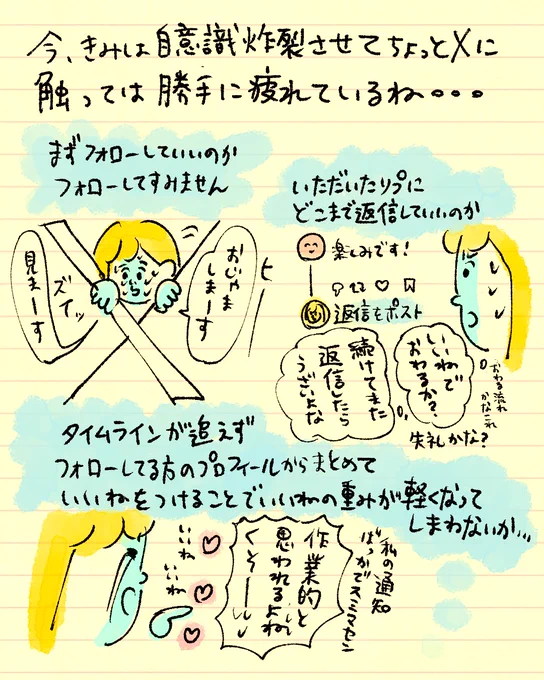 今、きみは自意識炸裂させてちょっとXに
触っては勝手に疲れているね。。。
まずフォローしていいのか
フォローしてすみません
おじゃま
しまーす
ズイッ
見まーす
いただいたリプに
どこまで返信していいのか
楽しみです!
返信をポスト
いいねで
おわるか?
続けてきた
返信したら
うざいよな
おわる流れ
かなこれ
失礼かな?
タイムラインが追えず
フォローしてる方のプロフィールからまとめて
いいねをつけることでいいねの重みが軽くなって
しまわないか...
私の通知
ばっかでスミマセン
作業的と
思われるよね
くそーー
いいね
いいね